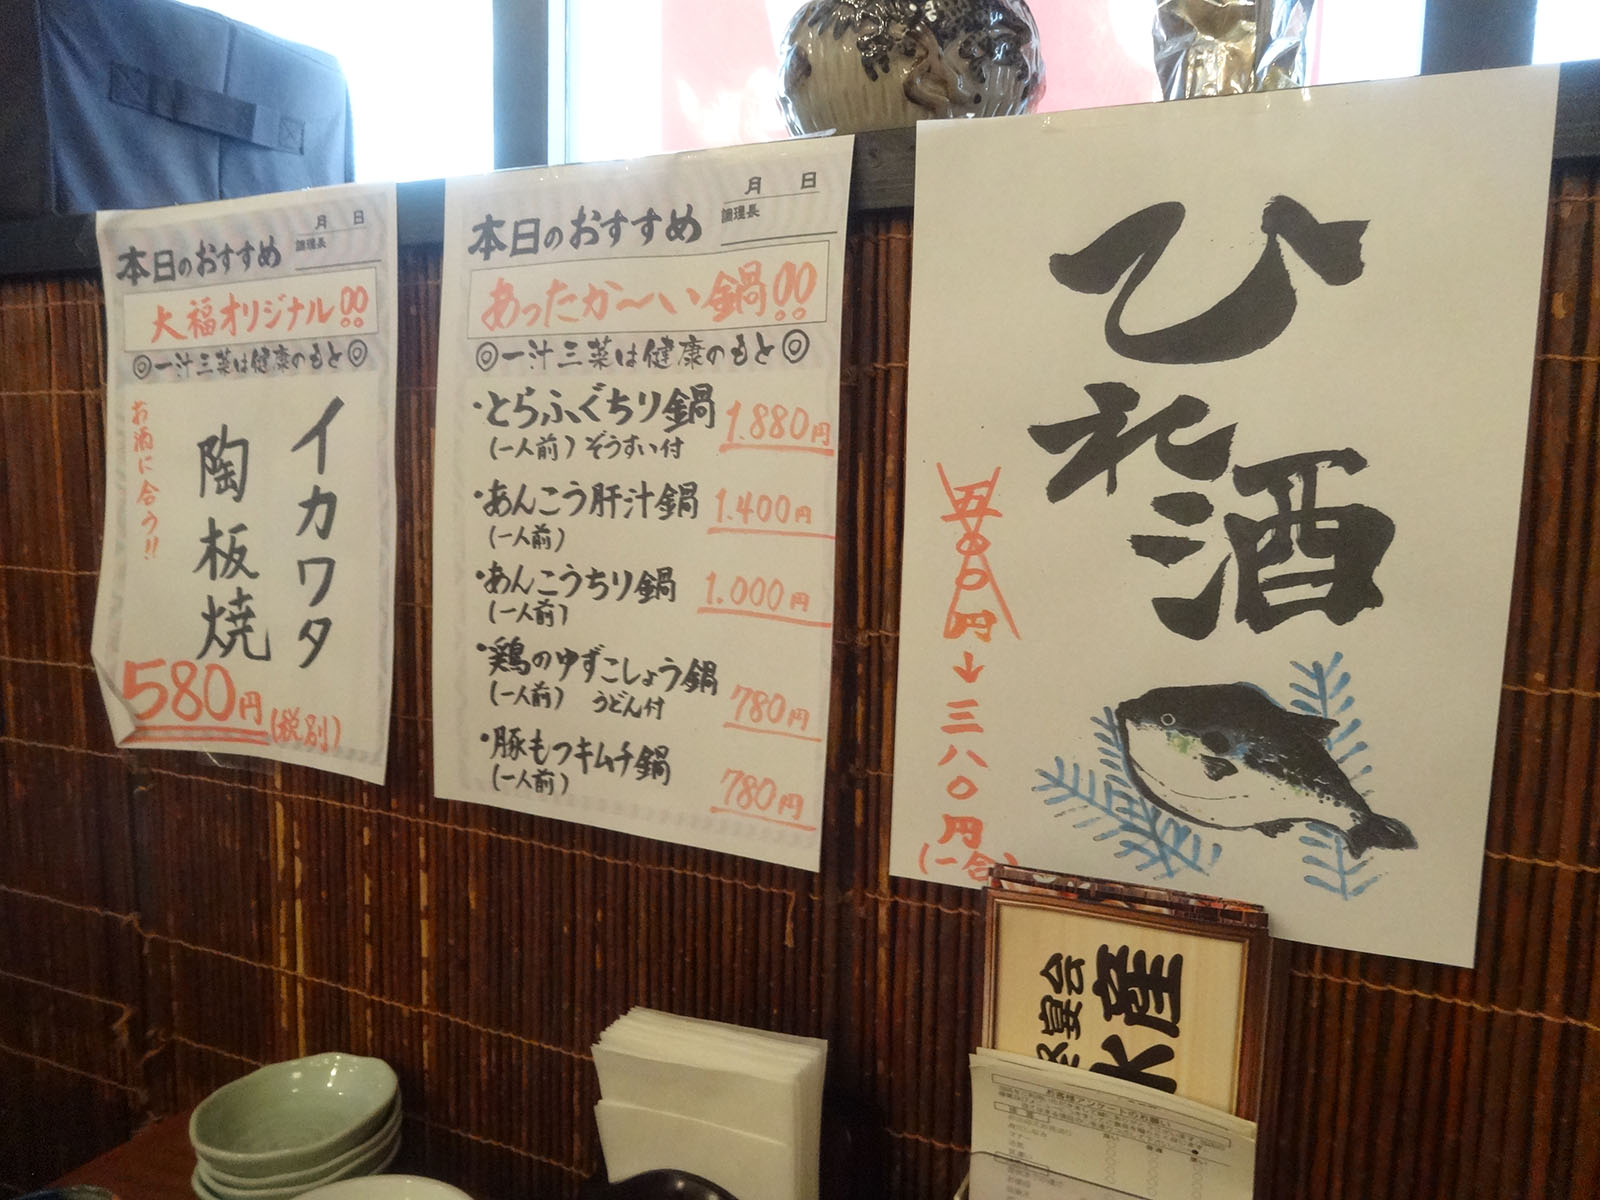 月 日
調理長
本日のおすすめ
大福オリジナル!!
◎一汁三菜は健康のもと◎
イカワタ
陶板焼
お酒に合う!!
580円(税別)
月 日
調理長
本日のおすすめ
あったか〜い鍋!!
◎一汁三菜は健康のもと◎
・とらふぐちり鍋 1.880円
(一人前)ぞうすい付
・あんこう肝汁鍋 1.400円
(一人前)
・あんこうちり鍋 1.000円
(一人前)
・鶏のゆずこしょう鍋 780円
(一人前) うどん付
・豚もつキムチ鍋 780円
(一人前)
ひれ酒
五〇〇円→三八〇円
(一合)
産
水
宴会
お客様アンケートのお願い